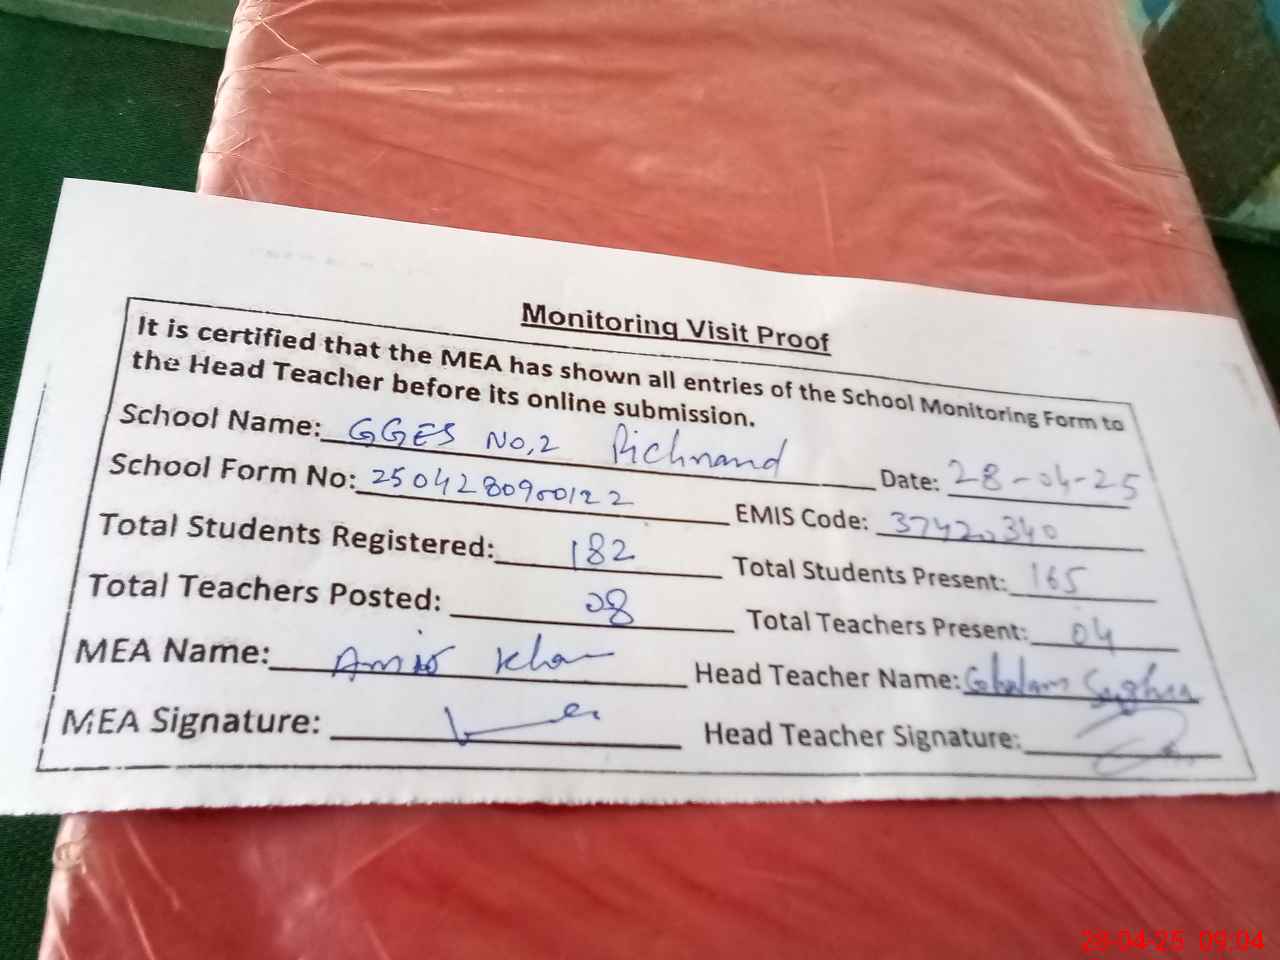 Monitoring Visit Proof
It is certified that the MEA has shown all entries of the School Monitoring Form to
the Head Teacher before its online submission.
School Name: GGES No,2 Richnand Date: 28-04-25
School Form No: 2504280900122 EMIS Code: 37420340
Total Students Registered: 182 Total Students Present: 165
Total Teachers Posted: 08 Total Teachers Present: 04
MEA Name: Amir Khan Head Teacher Name: Gholam Sughra
MEA Signature: Head Teacher Signature:
28-04-25 09:04